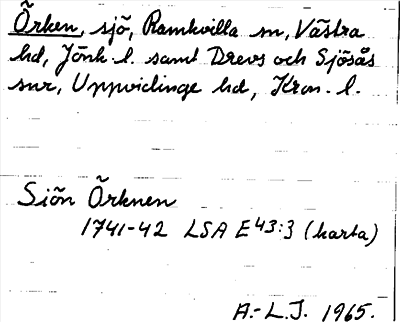 Örken, sjö, Ramkvilla sn, Västra
hd, Jönk. l. samt Drevs och Sjösås
snr, Uppvidinge hd, Kron. l.
Siön Örknen
1741-42 LSA E43:3 (karta)
A.-L.J. 1965.